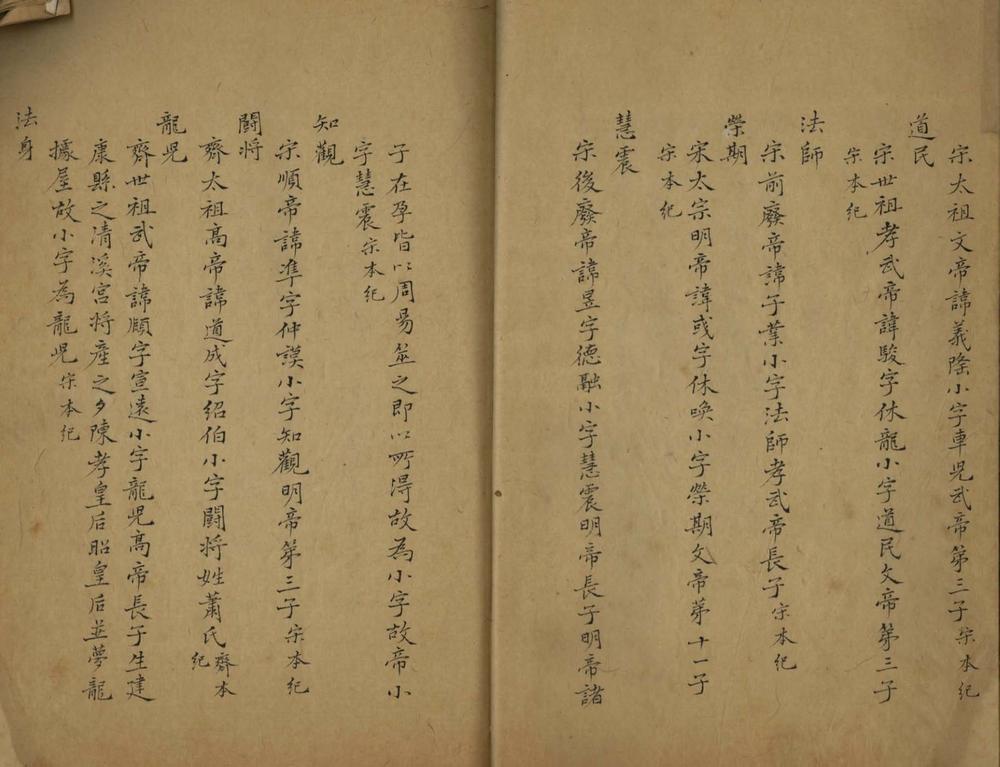 宗太祖文帝諱義隆小字車児武帝第三子宗本紀
道民
宗世祖孝武帝諱駿字休龍小字道民文帝第三子
宗本紀
法師
宗前廢帝諱子業小字法師孝武帝長子宗本紀
榮期
宋太宗明帝諱彧字休喚小字榮期文帝第十一子
宗本紀
慧震
宗後廢帝諱昱字德融小字慧震明帝長子明帝諸
子在孕皆以周易筮之即以所得故為小字故帝小
字慧震宗本紀
知觀
宗順帝諱準字仲謨小字知觀明帝第三子宗本紀
闘将
齊太祖高帝諱道成字紹伯小字闘将姓蕭氏齊本
紀
龍児
齊世祖武帝諱頤字宣遠小字龍児高帝長子生建
康縣之清溪宮将産之夕陳孝皇后昭皇后並夢龍
據屋故小字為龍児宗本紀
法身